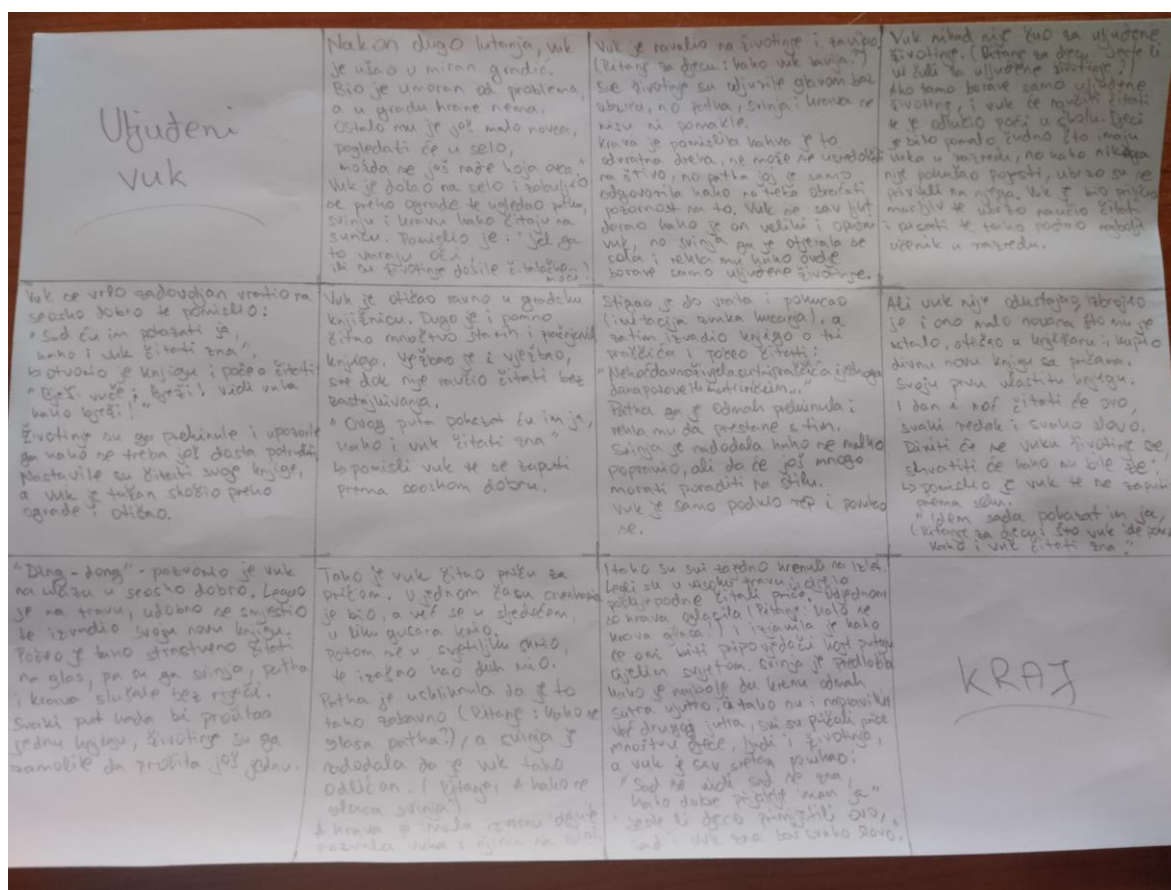 Uljuđeni
vuk
Nakon dugo lutanja, vuk
je ušao u miran gradić.
Bio je umoran od problema,
a u gradu hrane nema.
Ostalo mu je još malo novca,
pogledati će u selo,
možda ne još nađe koja ovca."
Vuk je došao na selo i zabuljio
se preko ograde te ugledao patku,
svinju i kravu kako čitaju na
suncu. Pomislio je: "Jel ga
to varaju oči,
ili su životinje dobile čitalačke moći?
Vuk je navalio na životinje i zavijao
(Pitanje za djecu: kako vuk zavija?)
Sve životinje su odjurile glavom bez
obzira, no patka, svinja i krava se
nisu ni pomakle.
Krava je pomislila kakva je to
odvratna dreka, ne može se usredotočiti
na štivo, no patka joj je samo
odgovorila kako ne treba obraćati
pozornost na to. Vuk se sav ljut
derao kako je on veliki i opasni
vuk, no svinja ga je otjerala sa
sela i rekla mu kako ovdje
borave samo uljuđene životinje.
Vuk nikad nije čuo za uljuđene
životinje. (Pitanje za djecu: Jeste li
vi čuli za uljuđene životinje?)
Ako tamo borave samo uljuđene
životinje, i vuk će naučiti čitati
te je odlučio poći u školu. Djeci
je bilo pomalo čudno što imaju
vuka u razredu, no kako nikoga
nije pokušao pojesti, ubrzo su se
privikli na njega. Vuk je bio prilično
marljiv te ubrzo naučio čitati
i pisati te tako postao najbolji
učenik u razredu.
Vuk se vrlo zadovoljan vratio na
seosko dobro te pomislio:
"Sad ću im pokazati ja,
kako i vuk čitati zna".
↳ otvorio je knjigu i počeo čitati:
"Bježi vuče, bježi! vidi vuka
kako bježi!"
Životinje su ga prekinule i upozorile
ga kako se treba još dosta potruditi.
Nastavile su čitati svoje knjige,
a vuk je tužan skočio preko
ograde i otišao.
Vuk je otišao ravno u gradsku
knjižnicu. Dugo je i pomno
čitao mnoštvo starih i prašnjavih
knjiga. Vježbao je i vježbao,
sve dok nije naučio čitati bez
zastajkivanja.
"Ovog puta pokazat ću im ja,
kako i vuk čitati zna"
↳ pomisli vuk te se zaputi
prema seoskom dobru.
Stigao je do vrata i pokucao
(imitacija zvuka kucanja), a
zatim izvadio knjigu o tri
praščića i počeo čitati:
"Nekoćdavnoživjelasutripraščićaijednoga
danapozoveihmatiricirekneim..."
Patka ga je odmah prekinula i
rekla mu da prestane s tim.
Svinja je nadodala kako se malko
popravio, ali da će još mnogo
morati poraditi na stilu.
Vuk je samo podvio rep i povukao
se.
Ali vuk nije odustajao, izbrojio
je i ono malo novaca što mu je
ostalo, otišao u knjižaru i kupio
divnu novu knjigu sa pričama.
Svoju prvu vlastitu knjigu.
I dan i noć čitati će ovo,
svaki redak i svako slovo.
Diviti će se vuku životinje sve,
shvatiti će kako su bile zle.
↳ pomislio je vuk te se zaputi
prema selu.
"Idem sada pokazat im ja,
kako i vuk čitati zna."
"Ding-dong" - pozvonio je vuk
na ulazu u seosko dobro. Legao
je na travu, udobno se smjestio
te izvadio svoju novu knjigu.
Počeo je tako strastveno čitati
na glas, pa su ga svinja, patka
i krava slušale bez riječi.
Svaki put kada bi pročitao
jednu knjigu, životinje su ga
zamolile da pročita još jednu.
Tako je vuk čitao priču za
pričom. U jednom času crvenkapica
je bio, a već se u sljedećem,
u liku gusara krio.
Potom se u svjetiljku skrio,
te izašao kao duh mio.
Patka je uskliknula da je to
tako zabavno (Pitanje: kako se
glasa patka?), a svinja je
nadodala da je vuk tako
odličan. (Pitanje: A kako se
glasa svinja?)
A krava je malo
pozvala vuka s njima na izlet.
I tako su svi zajedno krenuli na izlet.
Legli su u visoku travu i cijelo
poslijepodne čitali priče. Odjednom
se krava oglasila (Pitanje: kako se
krava glasa?) i izjavila je kako
će oni biti pripovjedači koji putuju
cijelim svijetom. Svinja je predložila
kako je najbolje da krenu odmah
sutra ujutro, a tako su i napravili.
Već drugog jutra, svi su pričali priče
mnoštvu djece, ljudi i životinja,
a vuk je sav sretan
"Sad se vidi sad se zna,
kako dobre prijatelje imam ja"
Jeste li djeco primijetili ovo,
sad i vuk zna baš svako slovo.
KRAJ